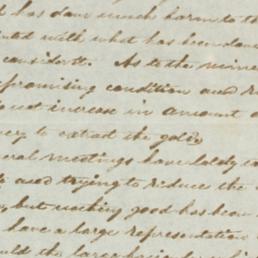 has done much harm to th
with what has been done
consider it. As to the mines
promising condition and re
not increase in amount o
to extract the gold
meetings have lately
and trying to reduce the
but nothing good has been
have a large representation
the large